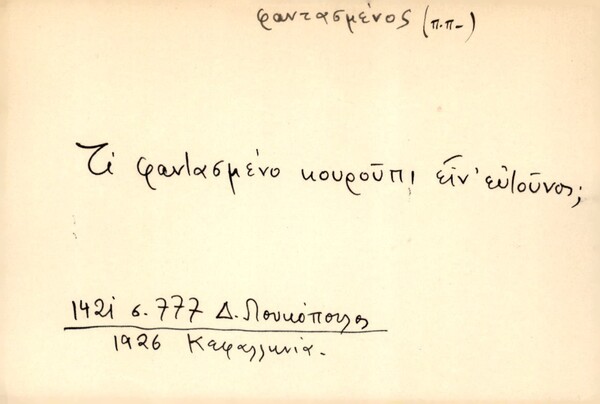 φαντασμένος (π.π-)
Τί φαντασμένο κουροῦπι εἶν' εὐτοῦνος;
142i σ. 777 Δ. Λουκόπουλος
1926 Κεφαλληνία.